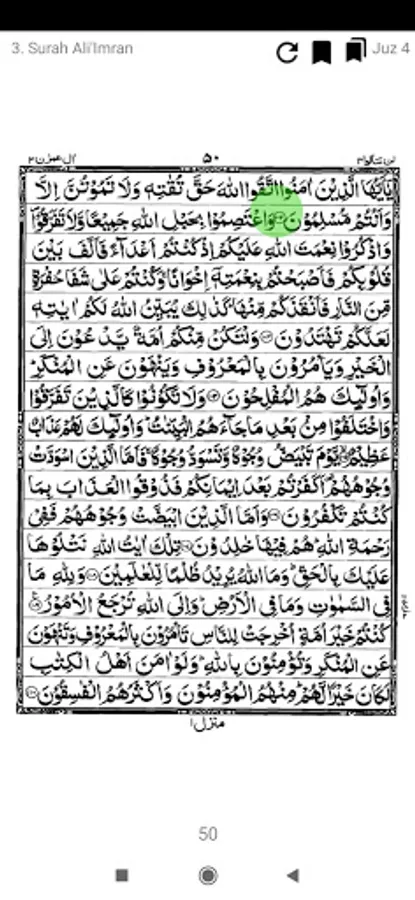 3. Surah Ali'Imran Juz 4
لن تنالوا ٤ ٥٠ اٰل عمرٰن ٣
يٰۤاَيُّهَا الَّذِيْنَ اٰمَنُوا اتَّقُوا اللّٰهَ حَقَّ تُقٰتِهٖ وَلَا تَمُوْتُنَّ اِلَّا
وَاَنْتُمْ مُّسْلِمُوْنَ ۝ وَاعْتَصِمُوْا بِحَبْلِ اللّٰهِ جَمِيْعًا وَّلَا تَفَرَّقُوْا
وَاذْكُرُوْا نِعْمَتَ اللّٰهِ عَلَيْكُمْ اِذْ كُنْتُمْ اَعْدَآءً فَاَلَّفَ بَيْنَ
قُلُوْبِكُمْ فَاَصْبَحْتُمْ بِنِعْمَتِهٖۤ اِخْوَانًا وَكُنْتُمْ عَلٰى شَفَا حُفْرَةٍ
مِّنَ النَّارِ فَاَنْقَذَكُمْ مِّنْهَا كَذٰلِكَ يُبَيِّنُ اللّٰهُ لَكُمْ اٰيٰتِهٖ
لَعَلَّكُمْ تَهْتَدُوْنَ ۝ وَلْتَكُنْ مِّنْكُمْ اُمَّةٌ يَّدْعُوْنَ اِلَى
الْخَيْرِ وَيَاْمُرُوْنَ بِالْمَعْرُوْفِ وَيَنْهَوْنَ عَنِ الْمُنْكَرِ
وَاُولٰٓئِكَ هُمُ الْمُفْلِحُوْنَ ۝ وَلَا تَكُوْنُوْا كَالَّذِيْنَ تَفَرَّقُوْا
وَاخْتَلَفُوْا مِنْۢ بَعْدِ مَا جَآءَهُمُ الْبَيِّنٰتُ وَاُولٰٓئِكَ لَهُمْ عَذَابٌ
عَظِيْمٌ ۝ يَّوْمَ تَبْيَضُّ وُجُوْهٌ وَّتَسْوَدُّ وُجُوْهٌ فَاَمَّا الَّذِيْنَ اسْوَدَّتْ
وُجُوْهُهُمْ اَكَفَرْتُمْ بَعْدَ اِيْمَانِكُمْ فَذُوْقُوا الْعَذَابَ بِمَا
كُنْتُمْ تَكْفُرُوْنَ ۝ وَاَمَّا الَّذِيْنَ ابْيَضَّتْ وُجُوْهُهُمْ فَفِيْ
رَحْمَةِ اللّٰهِ هُمْ فِيْهَا خٰلِدُوْنَ ۝ تِلْكَ اٰيٰتُ اللّٰهِ نَتْلُوْهَا
عَلَيْكَ بِالْحَقِّ وَمَا اللّٰهُ يُرِيْدُ ظُلْمًا لِّلْعٰلَمِيْنَ ۝ وَلِلّٰهِ مَا
فِى السَّمٰوٰتِ وَمَا فِى الْاَرْضِ وَاِلَى اللّٰهِ تُرْجَعُ الْاُمُوْرُ ۝
كُنْتُمْ خَيْرَ اُمَّةٍ اُخْرِجَتْ لِلنَّاسِ تَاْمُرُوْنَ بِالْمَعْرُوْفِ وَتَنْهَوْنَ
عَنِ الْمُنْكَرِ وَتُؤْمِنُوْنَ بِاللّٰهِ وَلَوْ اٰمَنَ اَهْلُ الْكِتٰبِ
لَكَانَ خَيْرًا لَّهُمْ مِنْهُمُ الْمُؤْمِنُوْنَ وَاَكْثَرُهُمُ الْفٰسِقُوْنَ ۝
منزل ١
50